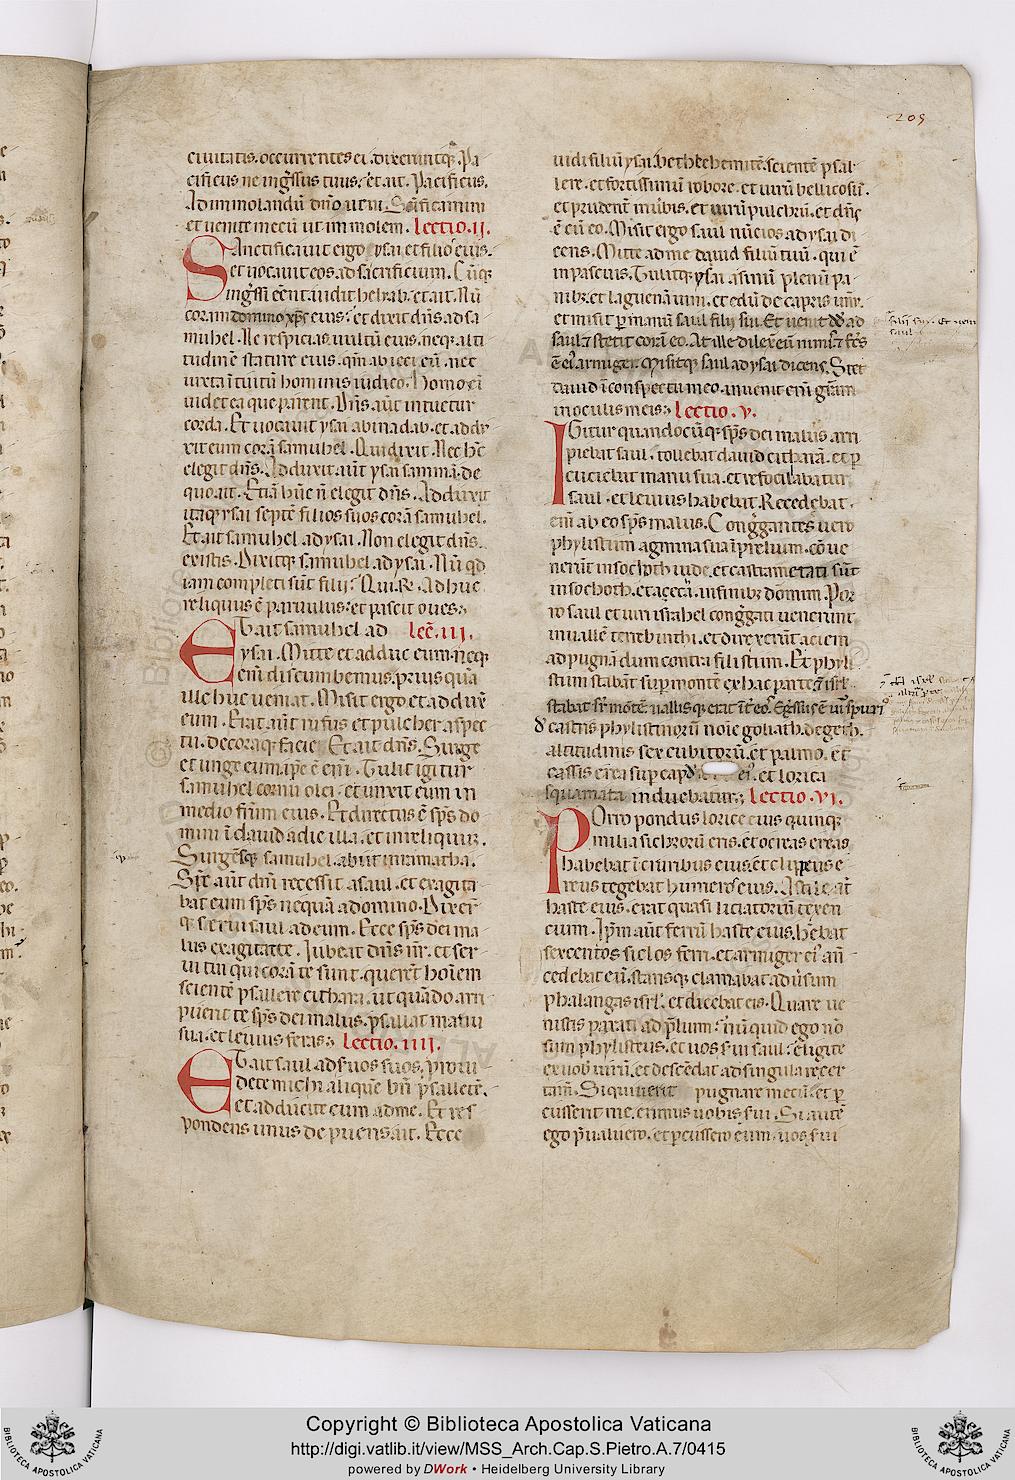 209
ciuitatis. occurrentes ei. dixeruntq. Pa
cificus ne ingssus tuus. et ait. Pacificus.
Ad immolandū dno ueni. Scificamini
et uenite mecū ut immolem. Lectio. II.
Sanctificauit ergo ysai et filios eius.
et uocauit eos ad sacrificium. Cūq
ingssi eent. uidit heliab. et ait. Nū
coram domino xps eius. et dixit dns ad sa
muhel. Ne respicias uultū eius. neq alti
tudinē stature eius. qm abieci eū. nec
iuxta ītuitū hominis iudico. Homo eī
uidet ea que parent. Dns aūt intuetur
corda. Et uocauit ysai abinadab. et addu
xit eum corā samuhel. Qui dixit. Nec hc
elegit dns. Adduxit aūt ysai sammā. de
quo ait. Etiā hūc n elegit dns. Adduxit
itaq ysai septē filios suos corā samuhel.
Et ait samuhel ad ysai. Non elegit dns
ex istis. Dixitq samuhel ad ysai. Nū qd
iam completi sūt filii. Qui R. Adhuc
reliquus ē paruulus. et pascit oues.
Et ait samuhel ad lec. III.
ysai. Mitte et adduc eum. neq
enī discumbemus. prius quā
ille huc ueniat. Misit ergo et adduxē
eum. Erat aūt rufus et pulcher aspec
tu. decoraq facie. Et ait dns. Surge
et unge eum. ipe ē enī. Tulit igitur
samuhel cornu olei. et unxit eum in
medio frīm eius. Et directus ē sps do
mini ī dauid a die illa. et in reliquum.
Surgēsq samuhel. abiit in ramatha.
Sps aūt dni recessit a saul. et exagita
bat eum sps nequā a domino. Dixer
q serui saul ad eum. Ecce sps dei ma
lus exagitat te. Iubeat dns nr. et ser
ui tui qui corā te sunt. querēt hoīem
scientē psallere cithara. ut quādo arri
puerit te sps dei malus. psallat manu
sua. et leuius feras. Lectio. IIII.
Et ait saul ad suos suos. proui
dete michi aliquē bn psallētē.
et adducite eum ad me. Et res
pondens unus de pueris. ait. Ecce
uidi filiū ysai. bethlehemitē. scientē psal
lere. et fortissimū robore. et uirū bellicosū.
et prudentē in uūbis. et uirū pulchrū. et dns
ē cū eo. Misit ergo saul nūcios ad ysai di
cens. Mitte ad me dauid filiū tuū. qui ē
in pascuis. Tulitq ysai asinū plenū pa
nibz. et laguenā uini. et edū de capris unū.
et misit p manū saul filii sui. Et uenit dd ad
saul. et stetit corā eo. At ille dilexit eū nimis. et fcs
ē ei armiger. Misitq saul ad ysai dicens. Stet
dauid ī conspectu meo. inuenit enī grām
in oculis meis. Lectio. V.
Igitur quandocūq sps dei malus arri
piebat saul. tollebat dauid citharā. et p
cuciebat manu sua. et refocilabatur
saul. et leuius habebat. Recedebat
enī ab eo sps malus. Congregantes uero
phylistiim agmina sua ī prelium. cōue
nerūt in sochoth iude. et castrametati sūt
in sochoth. et açeca. in finibz domim. Por
ro saul et uiri israhel congregati uenerunt
in uallē terebinthi. et direxerūt aciem
ad pugnādum contra filistiim. Et phyli
stiim stabāt sup montē ex hac parte. et isrl
stabat sr mōtē uallisq erat īt eos. Egssus ē uir spuri
de castris phylistinorū noīe goliath. de geth.
altitudinis sex cubitorū. et palmo. et
cassis erea sup caput ei. et lorica
squamata induebatur. Lectio. VI.
Porro pondus lorice eius quinq
milia siclorū eris. et ocreas ereas
habebat ī cruribus eius. et clipeus e
reus tegebat humeros eius. Astile aūt
haste eius. erat quasi liciatoriū texen
cium. Ipm aūt ferrū haste eius. hebat
sexcentos siclos ferri. et armiger ei an
cedebat eū. stansq clamabat aduūsum
phalangas isrl. et dicebat eis. Quare ue
nistis parati ad plium. nūquid ego nō
sum phylisteus. et uos sui saul. eligite
ex uob uirū. et descēdat ad singulare cer
tam. Si quiuerit pugnare mecū. et p
cusserit me. erimus uobis sui. Si autē
ego pualuero. et pcussero eum. uos sui
Copyright © Biblioteca Apostolica Vaticana
http://digi.vatlib.it/view/MSS_Arch.Cap.S.Pietro.A.7/0415
powered by DWork • Heidelberg University Library
BIBLIOTECA APOSTOLICA VATICANA
BIBLIOTECA APOSTOLICA VATICANA